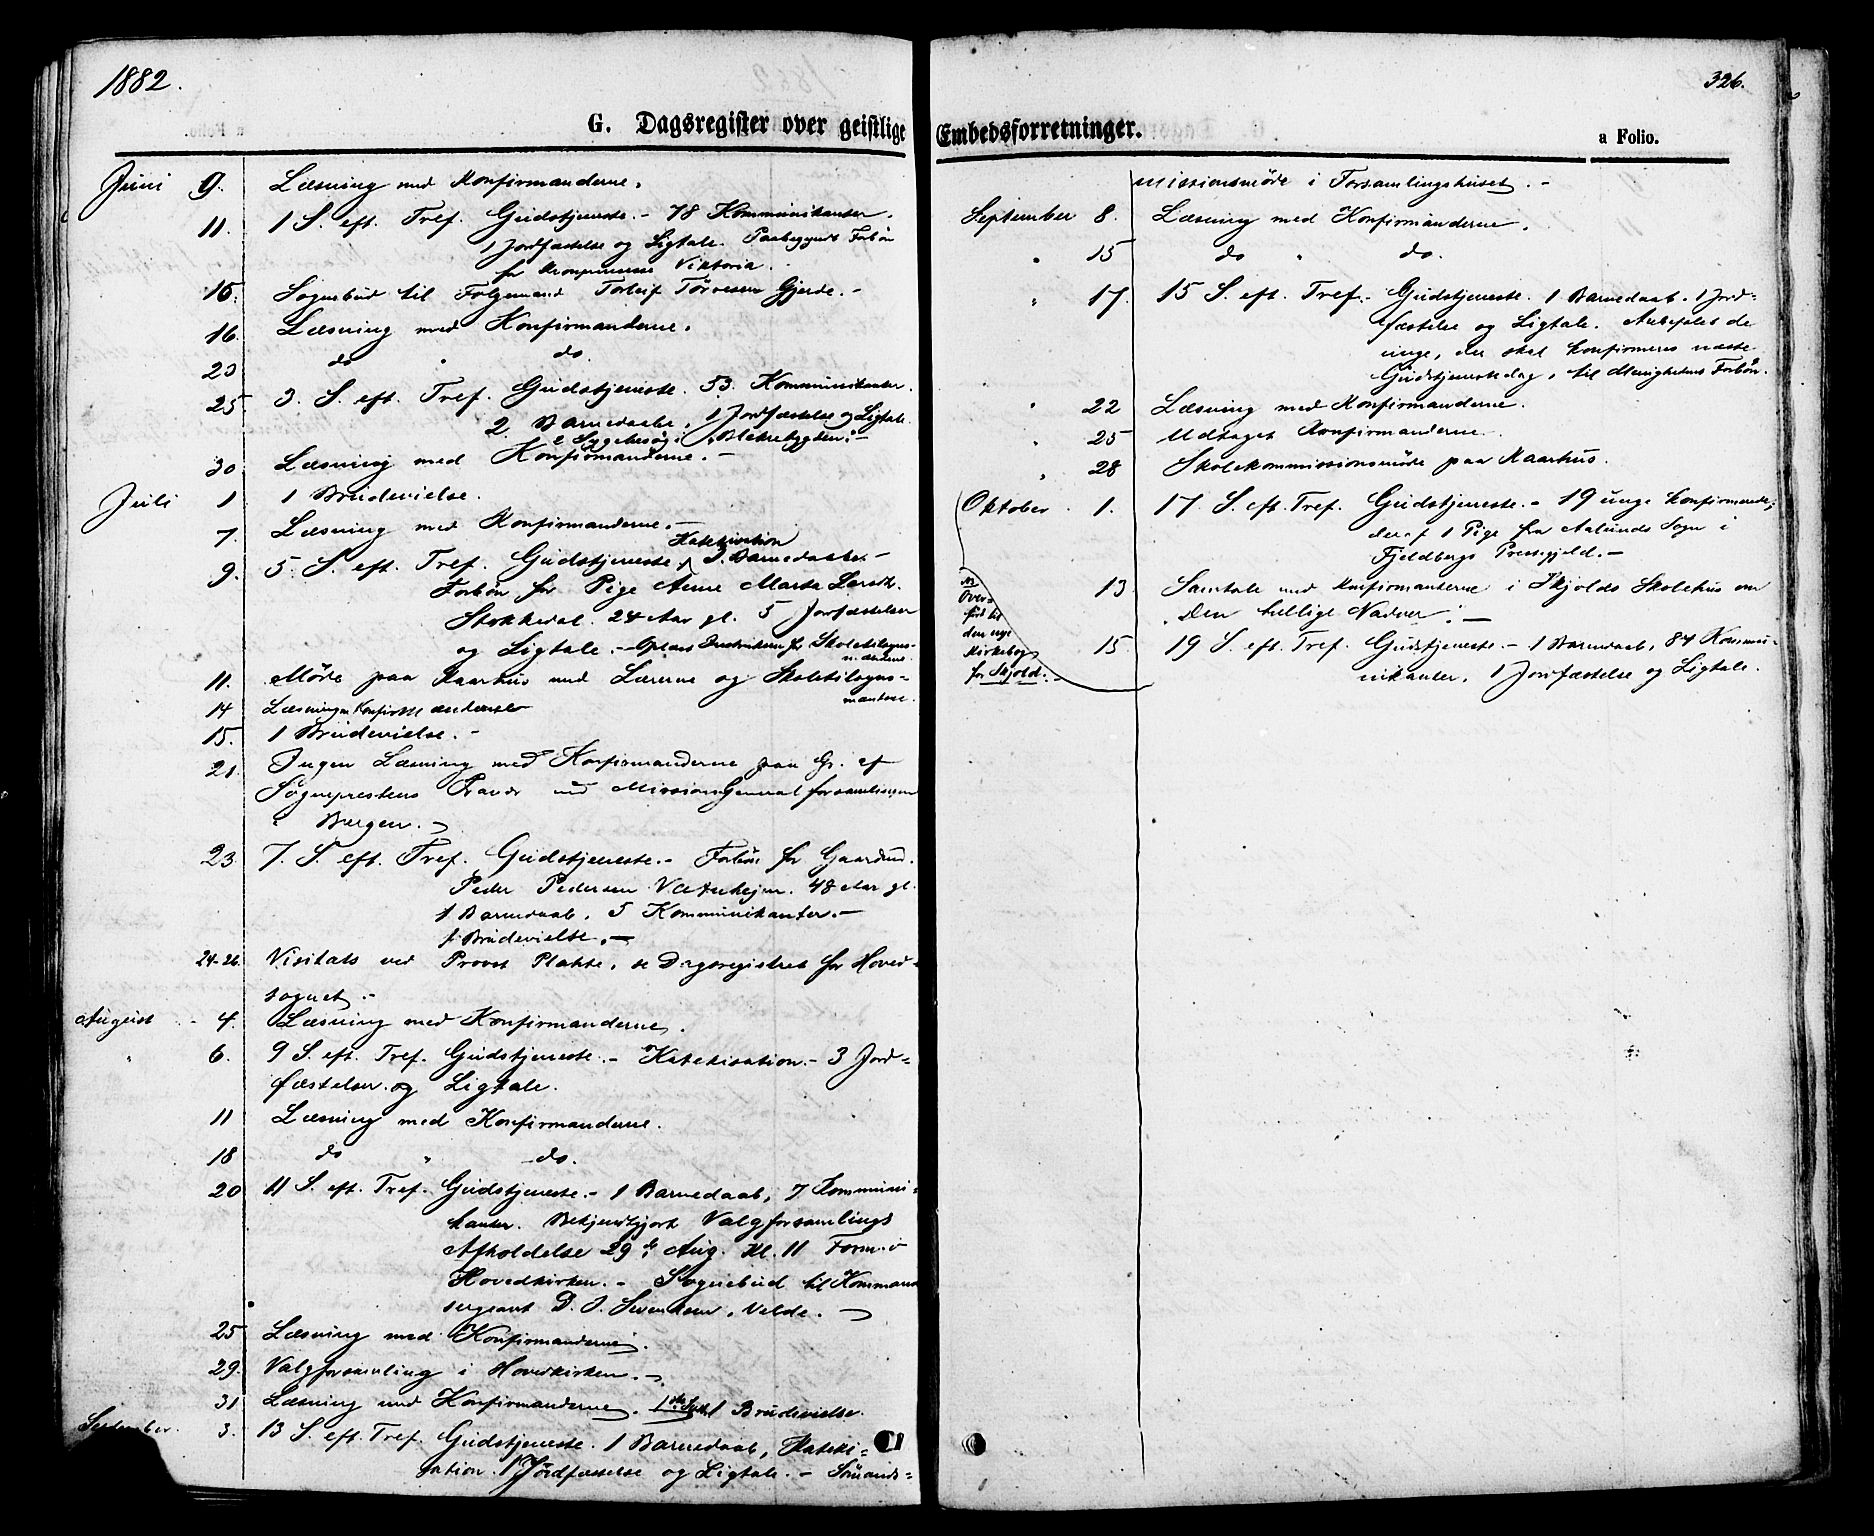 1882.
G. Dagsregister over geistlige
Juni 9. Læsning med Konfirmanderne.
11. 1 S. eft. Tref. Gudstjeneste. - 78 Kommunikanter.
1 Jordfæstelse og Ligtale. Paabegyndt Forbøn
for Kronprinsesse Viktoria.
15. Sognebud til Følgemand Torleif Törresen Gjerde. -
16. Læsning med Konfirmanderne.
23 do " do.
25. 3. S. eft. Tref. Gudstjeneste. 53. Kommunikanter.
2 Barnedaabe. 1 Jordfæstelse og Ligtale.
2 Sygebesøg i
30. Læsning med Konfirmanderne. -
Juli 1. 1 Brudevielse.
7. Læsning med Konfirmanderne. -
Katekisation
9. 5. S. eft. Tref. Gudstjeneste. 3. Barnedaabe. -
Forbøn for Pige Anne Marta Larsdt.
Stokkedal. 24 Aar gl. 5 Jordfæstelser
og Ligtale. - Oplæst Instruksen for Skoletilsyns-
mændene.
11. Møde paa Aarhus med Lærerne og Skoletilsyns-
mændene.
14 Læsning m Konfirmanderne
15. 1 Brudevielse. -
21. Ingen Læsning med Konfirmanderne paa Gr. af
Sognepræstens Fravær ved Missions General forsamlingen
i Bergen.
23. 7. S. eft. Tref. Gudstjeneste. - Forbøn for Gaardmd.
Peder Pedersen Vatnhejm. 48 Aar gl.
1 Barnedaab. 5 Kommunikanter. -
1 Brudevielse. -
24-26. Visitats ved Provst Plahte, se Dagsregistret for Hoved-
sognet. -
August - 4. Læsning med Konfirmanderne.
" 6. 9 S. eft. Tref. Gudstjeneste. - Katekisation. - 3 Jord=
fæstelser og Ligtale.
11 Læsning med Konfirmanderne.
18 do " do.
20 11 S. eft. Tref. Gudstjeneste. - 1 Barnedaab, 7 Kommuni-
kanter. Bekjendtgjort Valgforsamlings
Afholdelse 29de Aug. Kl. 11 Form. i
Hovedkirken. - Sognebud til Kommand
sergeant D. J. Svendsen, Velde.
25 Læsning med Konfirmanderne.
29. Valgforsamling i Hovedkirken. -
31 Læsning med Konfirmanderne. 1ste Sept. 1 Brudevielse.
September. 3. 13 S. eft. Tref. Gudstjeneste. 1 Barnedaab, Kateki=
sation. 1 Jordfæstelse og Ligtale. - Sömands=
326.
Embedsforretninger.
a Folio.
missionsmöde i Forsamlingshuset. -
September 8. Læsning med Konfirmanderne.
" 15 do " do.
" 17. 15 S. eft. Tref. - Gudstjeneste. 1 Barnedaab. 1 Jord=
fæstelse og Ligtale. Anbefalet de
unge, der skal konfirmeres næste
Gudstjenestedag, til Menighedens Forbön.
" 22 Læsning med Konfirmanderne.
" 25 Udtaget Konfirmanderne.
" 28 Skolekommissionsmöde paa Aarhus.
Oktober 1. 17. S. eft. Tref. Gudstjeneste. - 19 unge konfirmerede,
deraf 1 Pige fra Aalunds Sogn i
Fjeldbergs Prestegjeld. -
13 Samtale med Konfirmanterne i Skjolds Skolehus om
"Den hellige Nadver". -
15. 19 S. eft. Tref. Gudstjeneste. - 1 Barnedaab, 84 Kommu-
nikanter. 1 Jordfæstelse og Ligtale.
Over=
ført til
den nye
Kirkebog
for Skjold. -